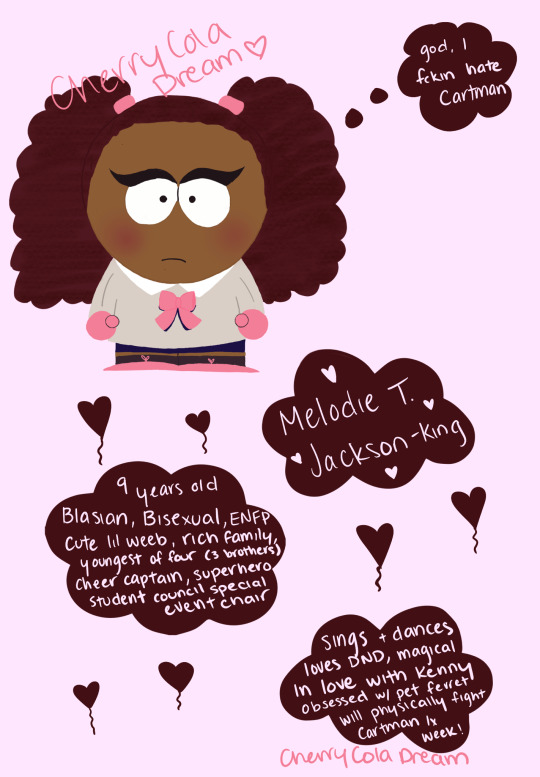 Cherry Cola
Dream
god, I
fckin hate
Cartman
Melodie T.
Jackson-King
9 years old
Blasian, Bisexual, ENFP
Cute lil weeb, rich family,
youngest of four (3 brothers)
cheer captain, superhero
student council special
event chair
sings + dances
loves DND, magical
In love with Kenny
Obsessed w/ pet ferret
will physically fight
Cartman 1x
week!
Cherry Cola Dream